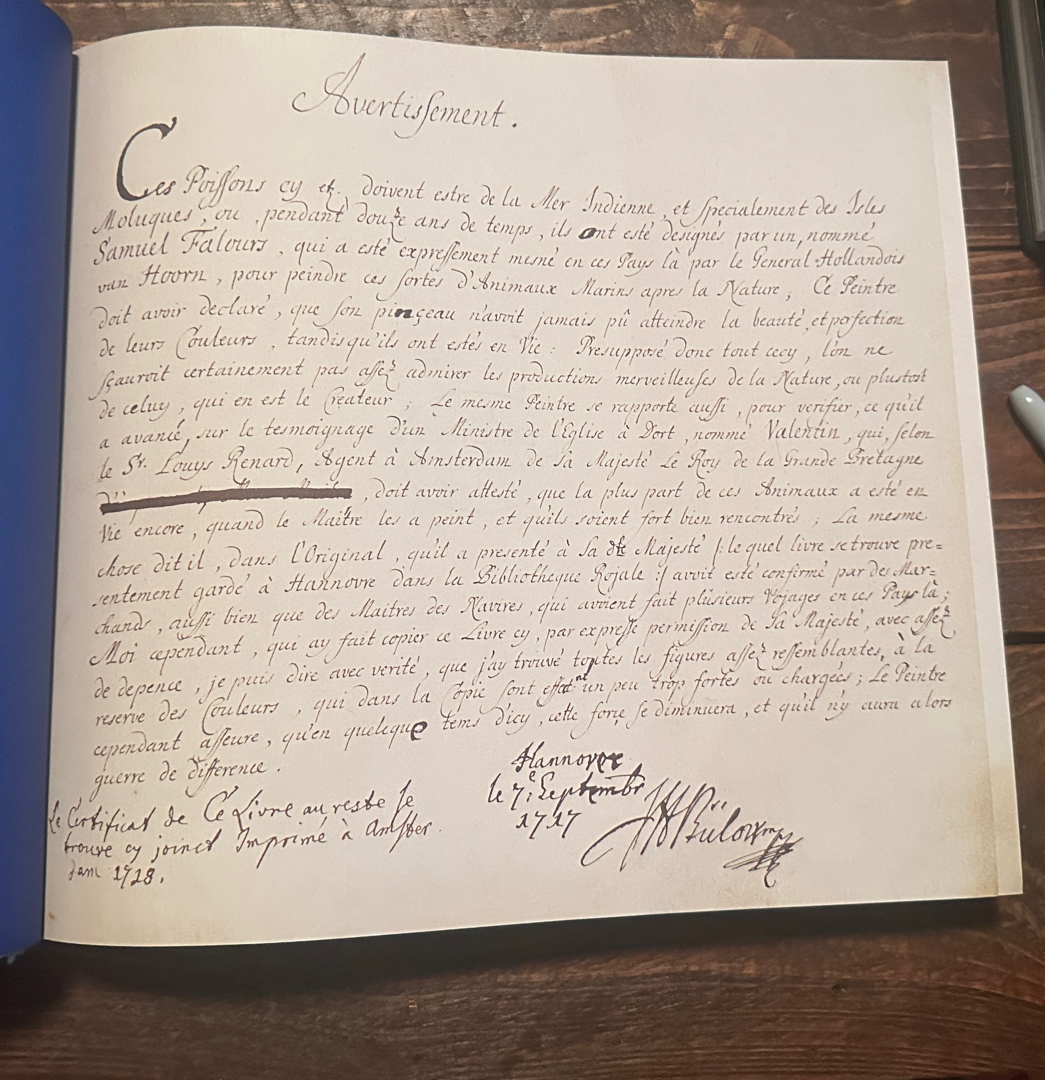 Avertissement.
Ces Poissons cy et. doivent estre de la Mer Indienne, et specialement des Isles
Moluques, ou, pendant douze ans de temps, ils ont esté designés par un, nommé
Samuel Falours, qui a esté expressement mené en ces Pays là par le General Hollandois
van Hoorn, pour peindre ces sortes d'Animaux Marins apres la Nature; Ce Peintre
doit avoir declaré, que son pinçeau n'avoit jamais pû atteindre la beauté, et perfection
de leurs Couleurs, tandis qu'ils ont estés en Vie: Presupposé donc tout cecy, l'on ne
sçauroit certainement pas assez admirer les productions merveilleuses de la Nature, ou plustost
de celuy, qui en est le Createur; Le mesme Peintre se rapporte aussi, pour verifier, ce qu'il
a avancé, sur le tesmoignage d'un Ministre de l'Eglise à Dort, nommé Valentin, qui, selon
le Sr. Louys Renard, Agent à Amsterdam de Sa Majesté Le Roy de la Grande Bretagne
, doit avoir attesté, que la plus part de ces Animaux a esté en
Vie encore, quand le Maitre les a peint, et qu'ils soient fort bien rencontrés; La mesme
chose dit il, dans l'Original, qu'il a presenté à Sa dte Majesté /: le quel livre se trouve pre=
sentement gardé à Hannovre dans la Bibliotheque Rojale :/ avoit esté confirmé par des Mar=
chands, aussi bien que des Maitres des Navires, qui avoient fait plusieurs Voyages en ces Pays là;
Moi cependant, qui ay fait copier ce Livre cy, par expresse permission de Sa Majesté, avec assez
de depence, je puis dire avec verité, que j'ay trouvé toutes les figures assez ressemblantes, à la
reserve des Couleurs, qui dans la Copie sont un peu trop fortes ou chargées; Le Peintre
cependant asseure, qu'en quelque tems d'icy, cette force se diminuera, et qu'il n'y aura alors
guerre de difference.
Hannovre
le 7e Septembr
1717
Bülow
Le Certificat de Ce Livre au reste se
trouve cy joinct Imprimé à Amster
dam 1718.